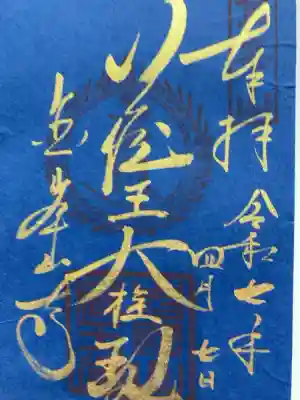 奉拝
令和七年
四月七日
蔵王大権現
金峯山寺